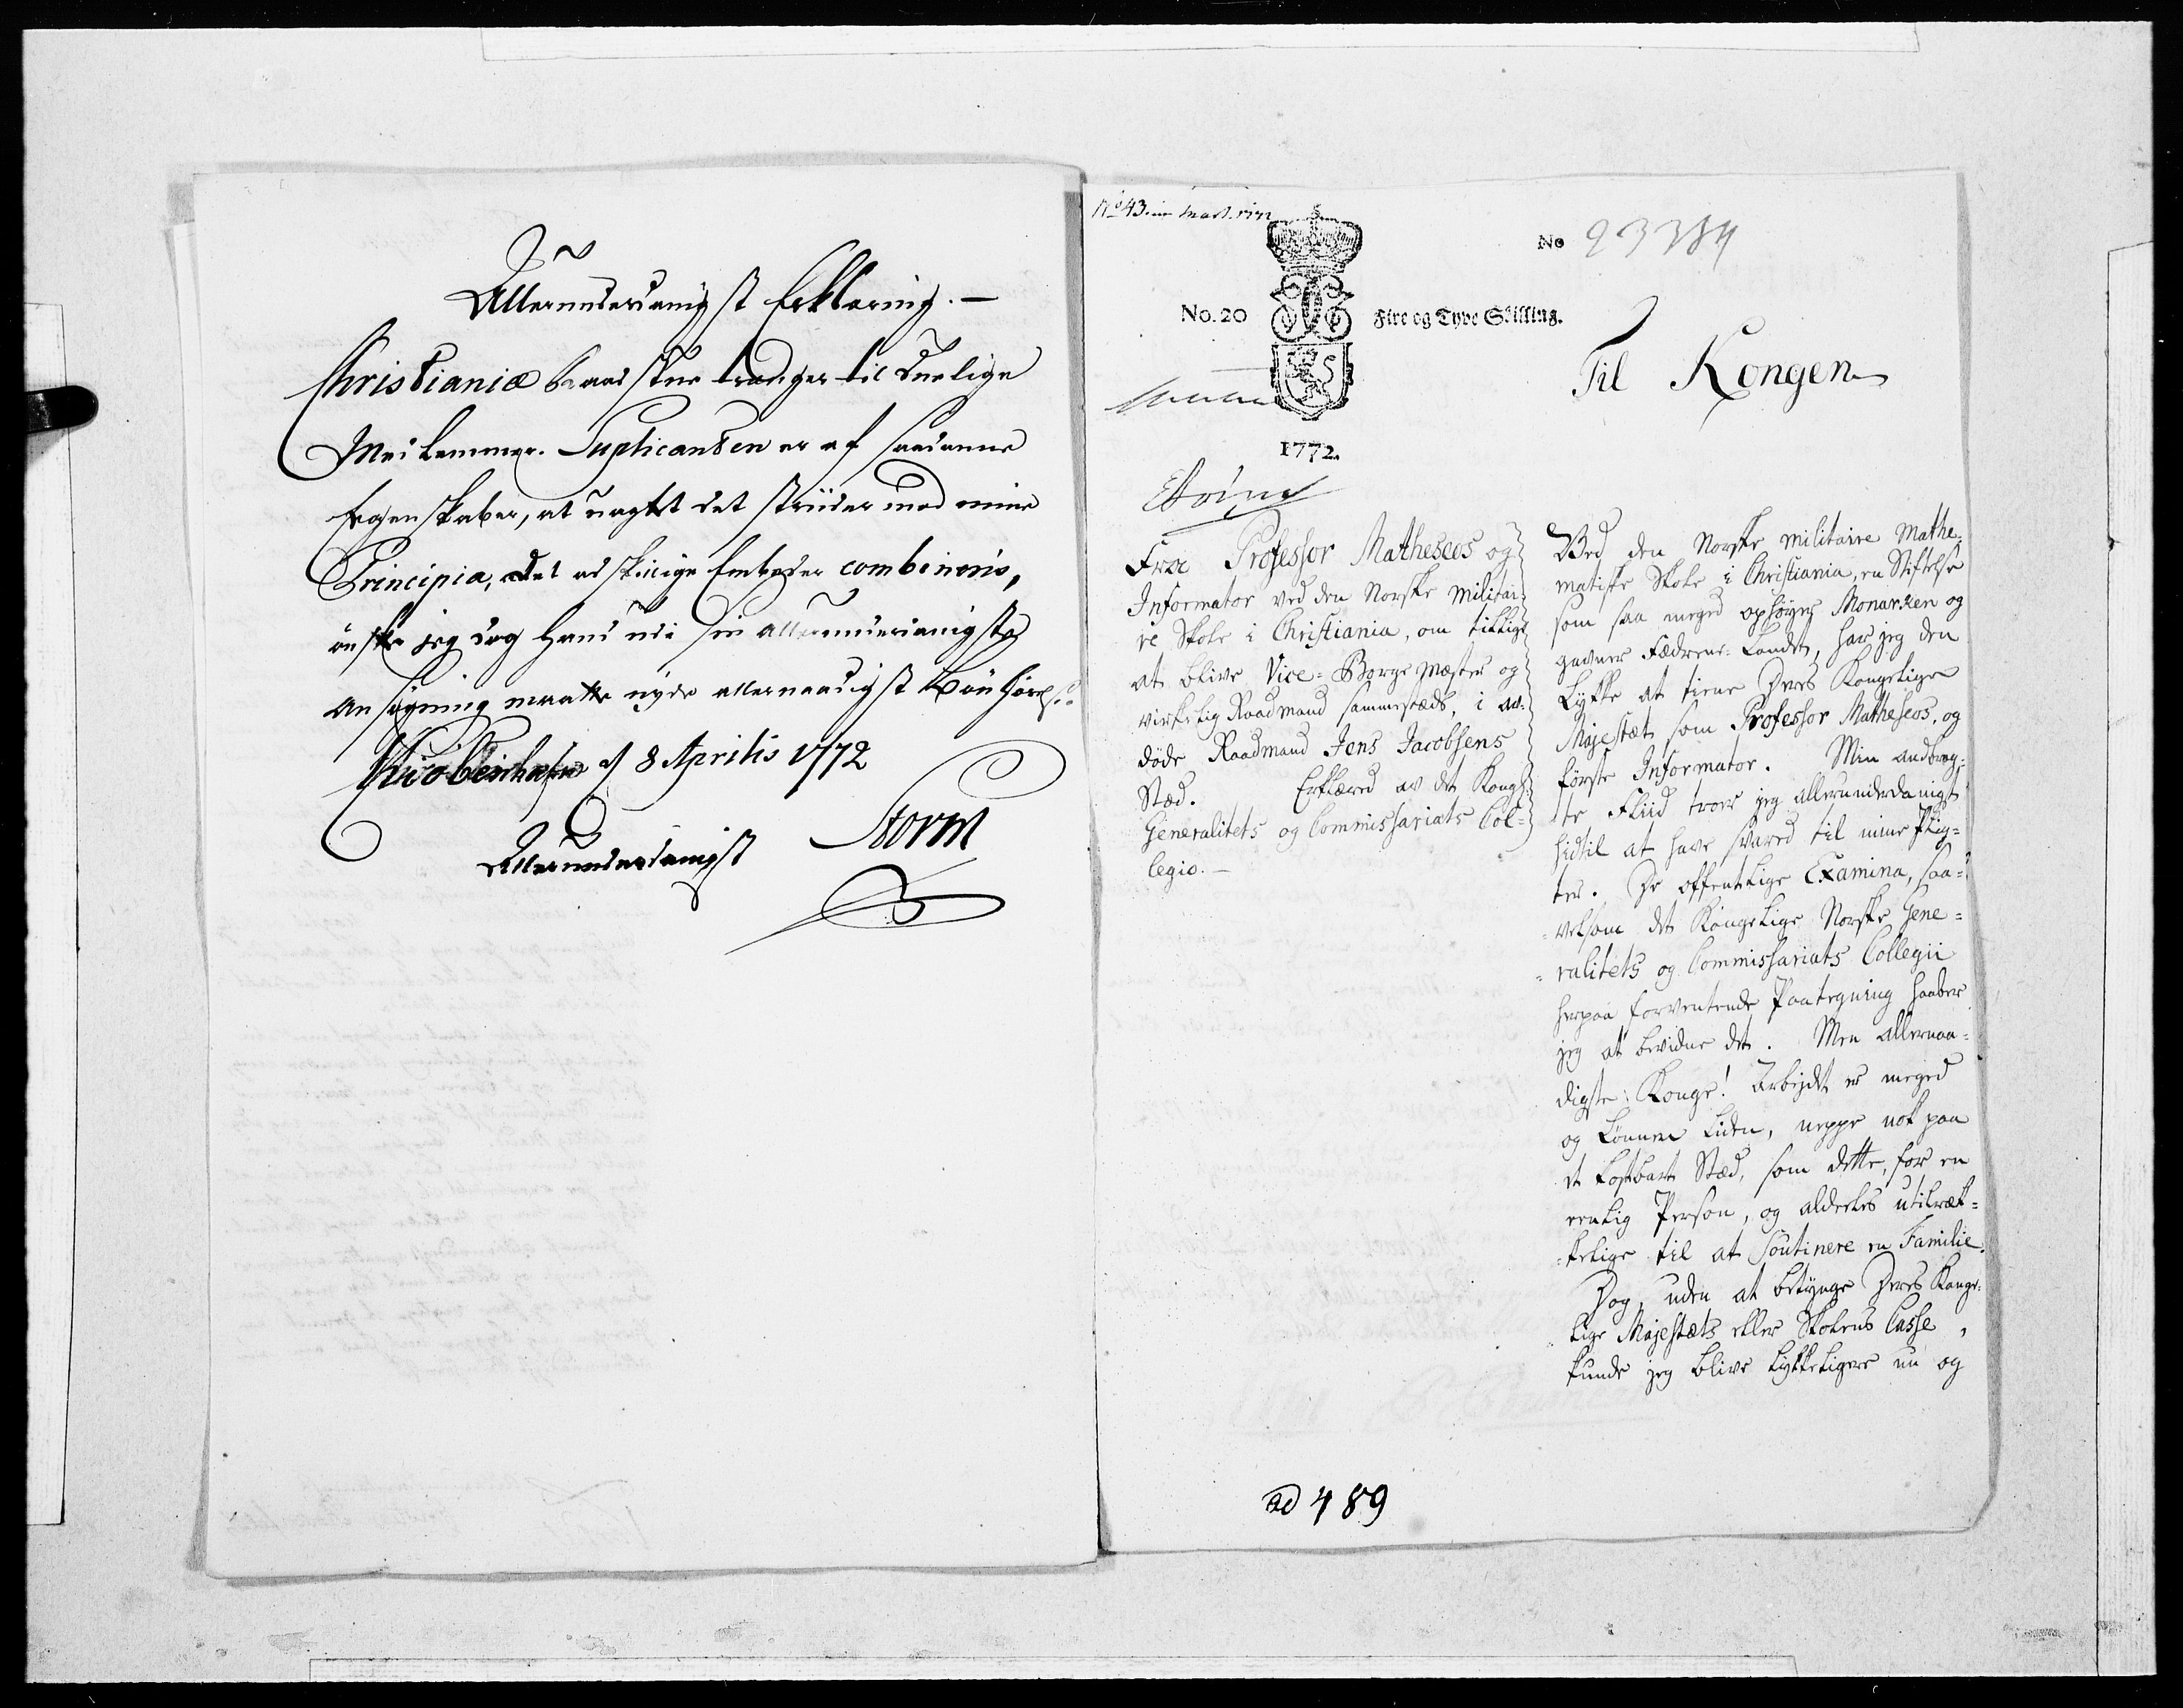 Allerunderdanigst Erklæring. —
Christianiæ Raadstue trænger til duelige
Medlemmer. Suplicanten er af saadanne
Egenskaber, at uagtet det striider mod mine
Principia, at adskillige Embeder combineris,
ønsker jeg dog hand udi sin allerunderdanigste
Ansøgning maatte nyde allernaadigst Bønhørelse.
Kiøbenhafn d 8 Aprilis 1772
Allerunderdanigst Storm
No 43. in Mart. 1772
No 23384
No. 20 Fire og Tyve Skilling.
1772.
Til Kongen
Fra Professor Matheseos og
Informator ved den Norske militai-
re Skole i Christiania, om tillige
at blive Vice-Borgemester og
virkelig Raadmand sammesteds, i af-
døde Raadmand Jens Jacobsens
Stæd. Erklæred av det Kongl:
Generalitets og Commissariats Col-
legio. —
Ved den Norske militaire Mathe-
matiske Skole i Christiania, en Stiftelse
som saa meged ophøyer Monarken og
gavner Fædrene-Landet, har jeg den
Lykke at tiene Deres Kongelige
Majestæt som Professor Matheseos, og
første Informator. Min anvendte
Fliid troer jeg allerunderdanigst
hidtil at have svared til mine Plig-
ter. De offentlige Examina, saa-
velsom det Kongelige Norske Gene-
ralitets og Commissariats Collegii
herpaa forventende Paategning haaber
jeg at bevidne det. Men allernaa-
digste Konge! Arbejdet er meged
og Lønnen liden, neppe nok paa
et kostbart Stæd, som dette, for en
eenlig Person, og aldeeles utilræk-
kelige til at soutinere en Familie.
Dog, uden at betynge Deres Konge-
lige Majestæts eller Skolens Casse,
kunde jeg blive lykkeligere nu og
ad 489